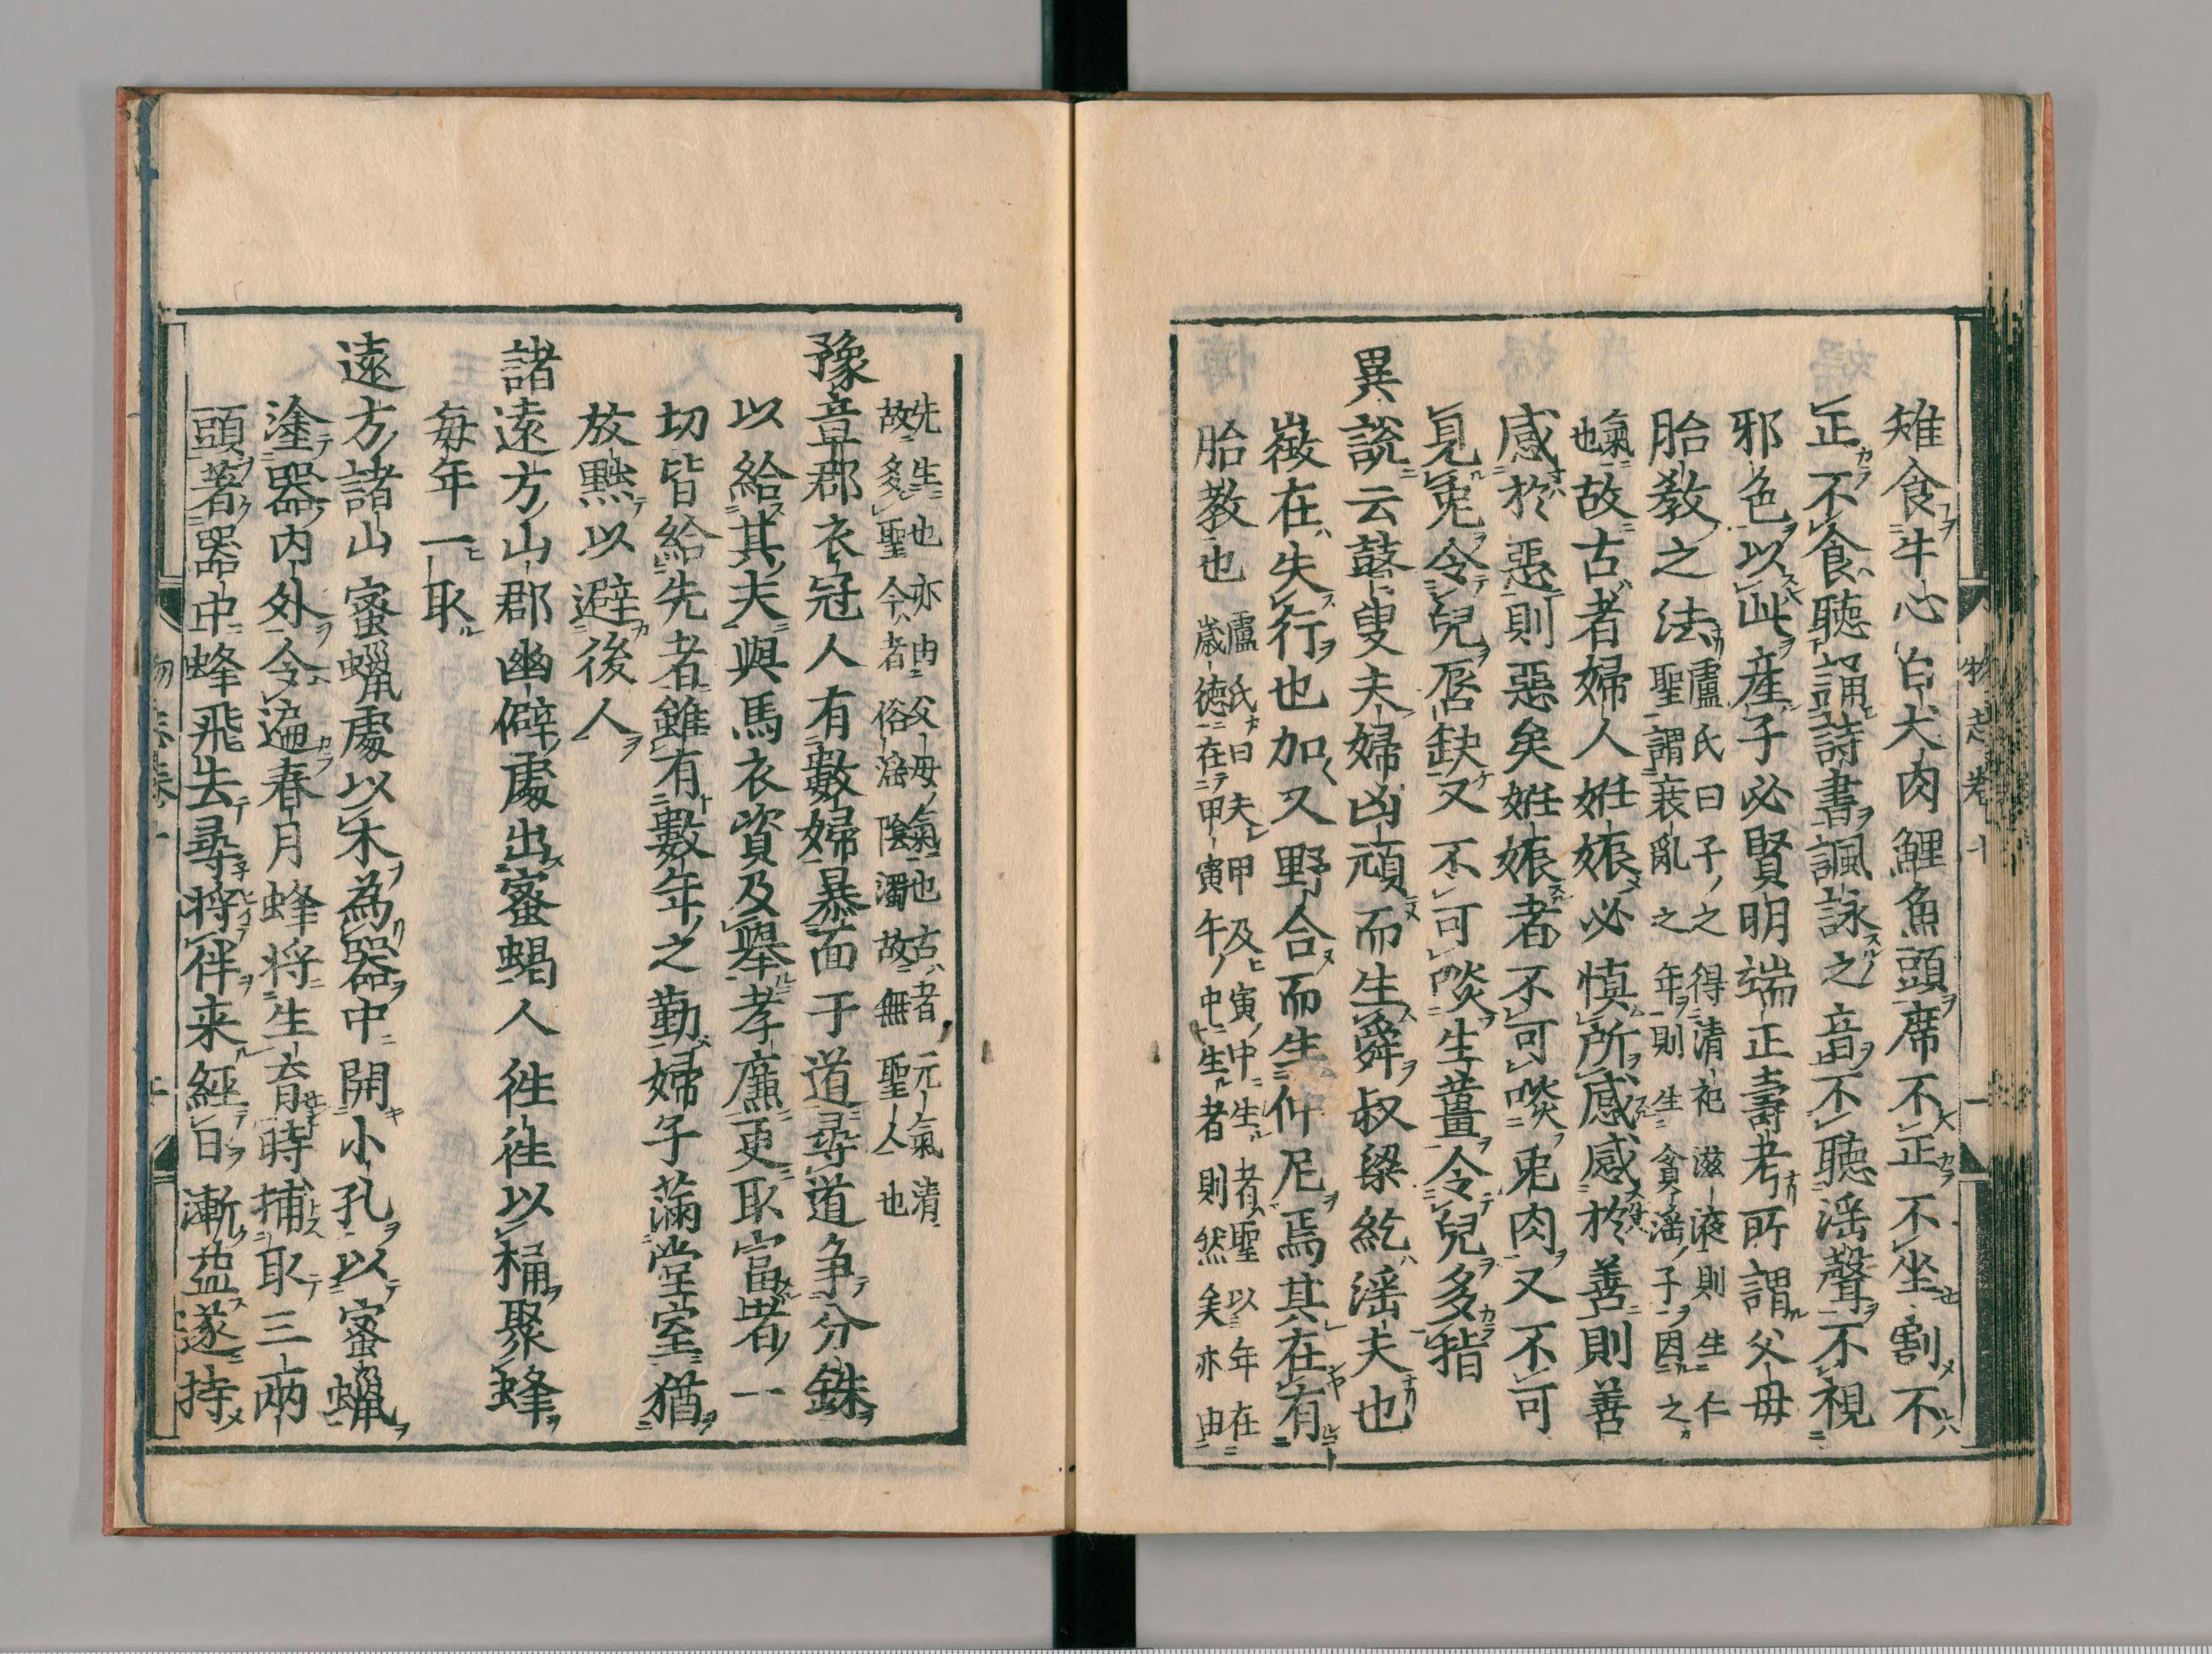 雉食牛心白犬肉鯉魚頭席不正不坐割不
正不食聽誦詩書諷詠之音不聽淫聲不視
邪色以此産子必賢明端正壽考所謂父母
胎教之法盧氏曰子之得清祀滋液則生仁
聖謂衰亂之年則生貪淫子因之
氣也故古者婦人姙娠必慎所感感於善則善
感於惡則惡矣姙娠者不可啖兎肉又不可
見兎令兒唇缺又不可啖生薑令兒多指
異説云瞽叟夫婦凶頑而生舜叔梁紇淫夫也
徴在失行也加又野合而生仲尼焉其在有
胎教也盧氏曰夫甲及寅中生者聖以年在
歳徳在甲寅午中生者則然矣亦由
先生也亦由父母氣也古者元氣清
故多聖今者俗淫陰濁故無聖人也
豫章郡衣冠人有數婦暴面于道尋道争分銖
以給其夫輿馬衣資及舉孝廉更取富者一
切皆給先者雖有數年之勤婦子滿堂室猶
放黙以避後人
諸遠方山郡幽僻處出蜜蝎人徃徃以桶聚蜂
毎年一取
遠方諸山蜜蝋處以木為器中開小孔以蜜蝋
塗器内外令遍春月蜂将生育時捕取三兩
頭著器中蜂飛去尋将伴来經日漸益遂持